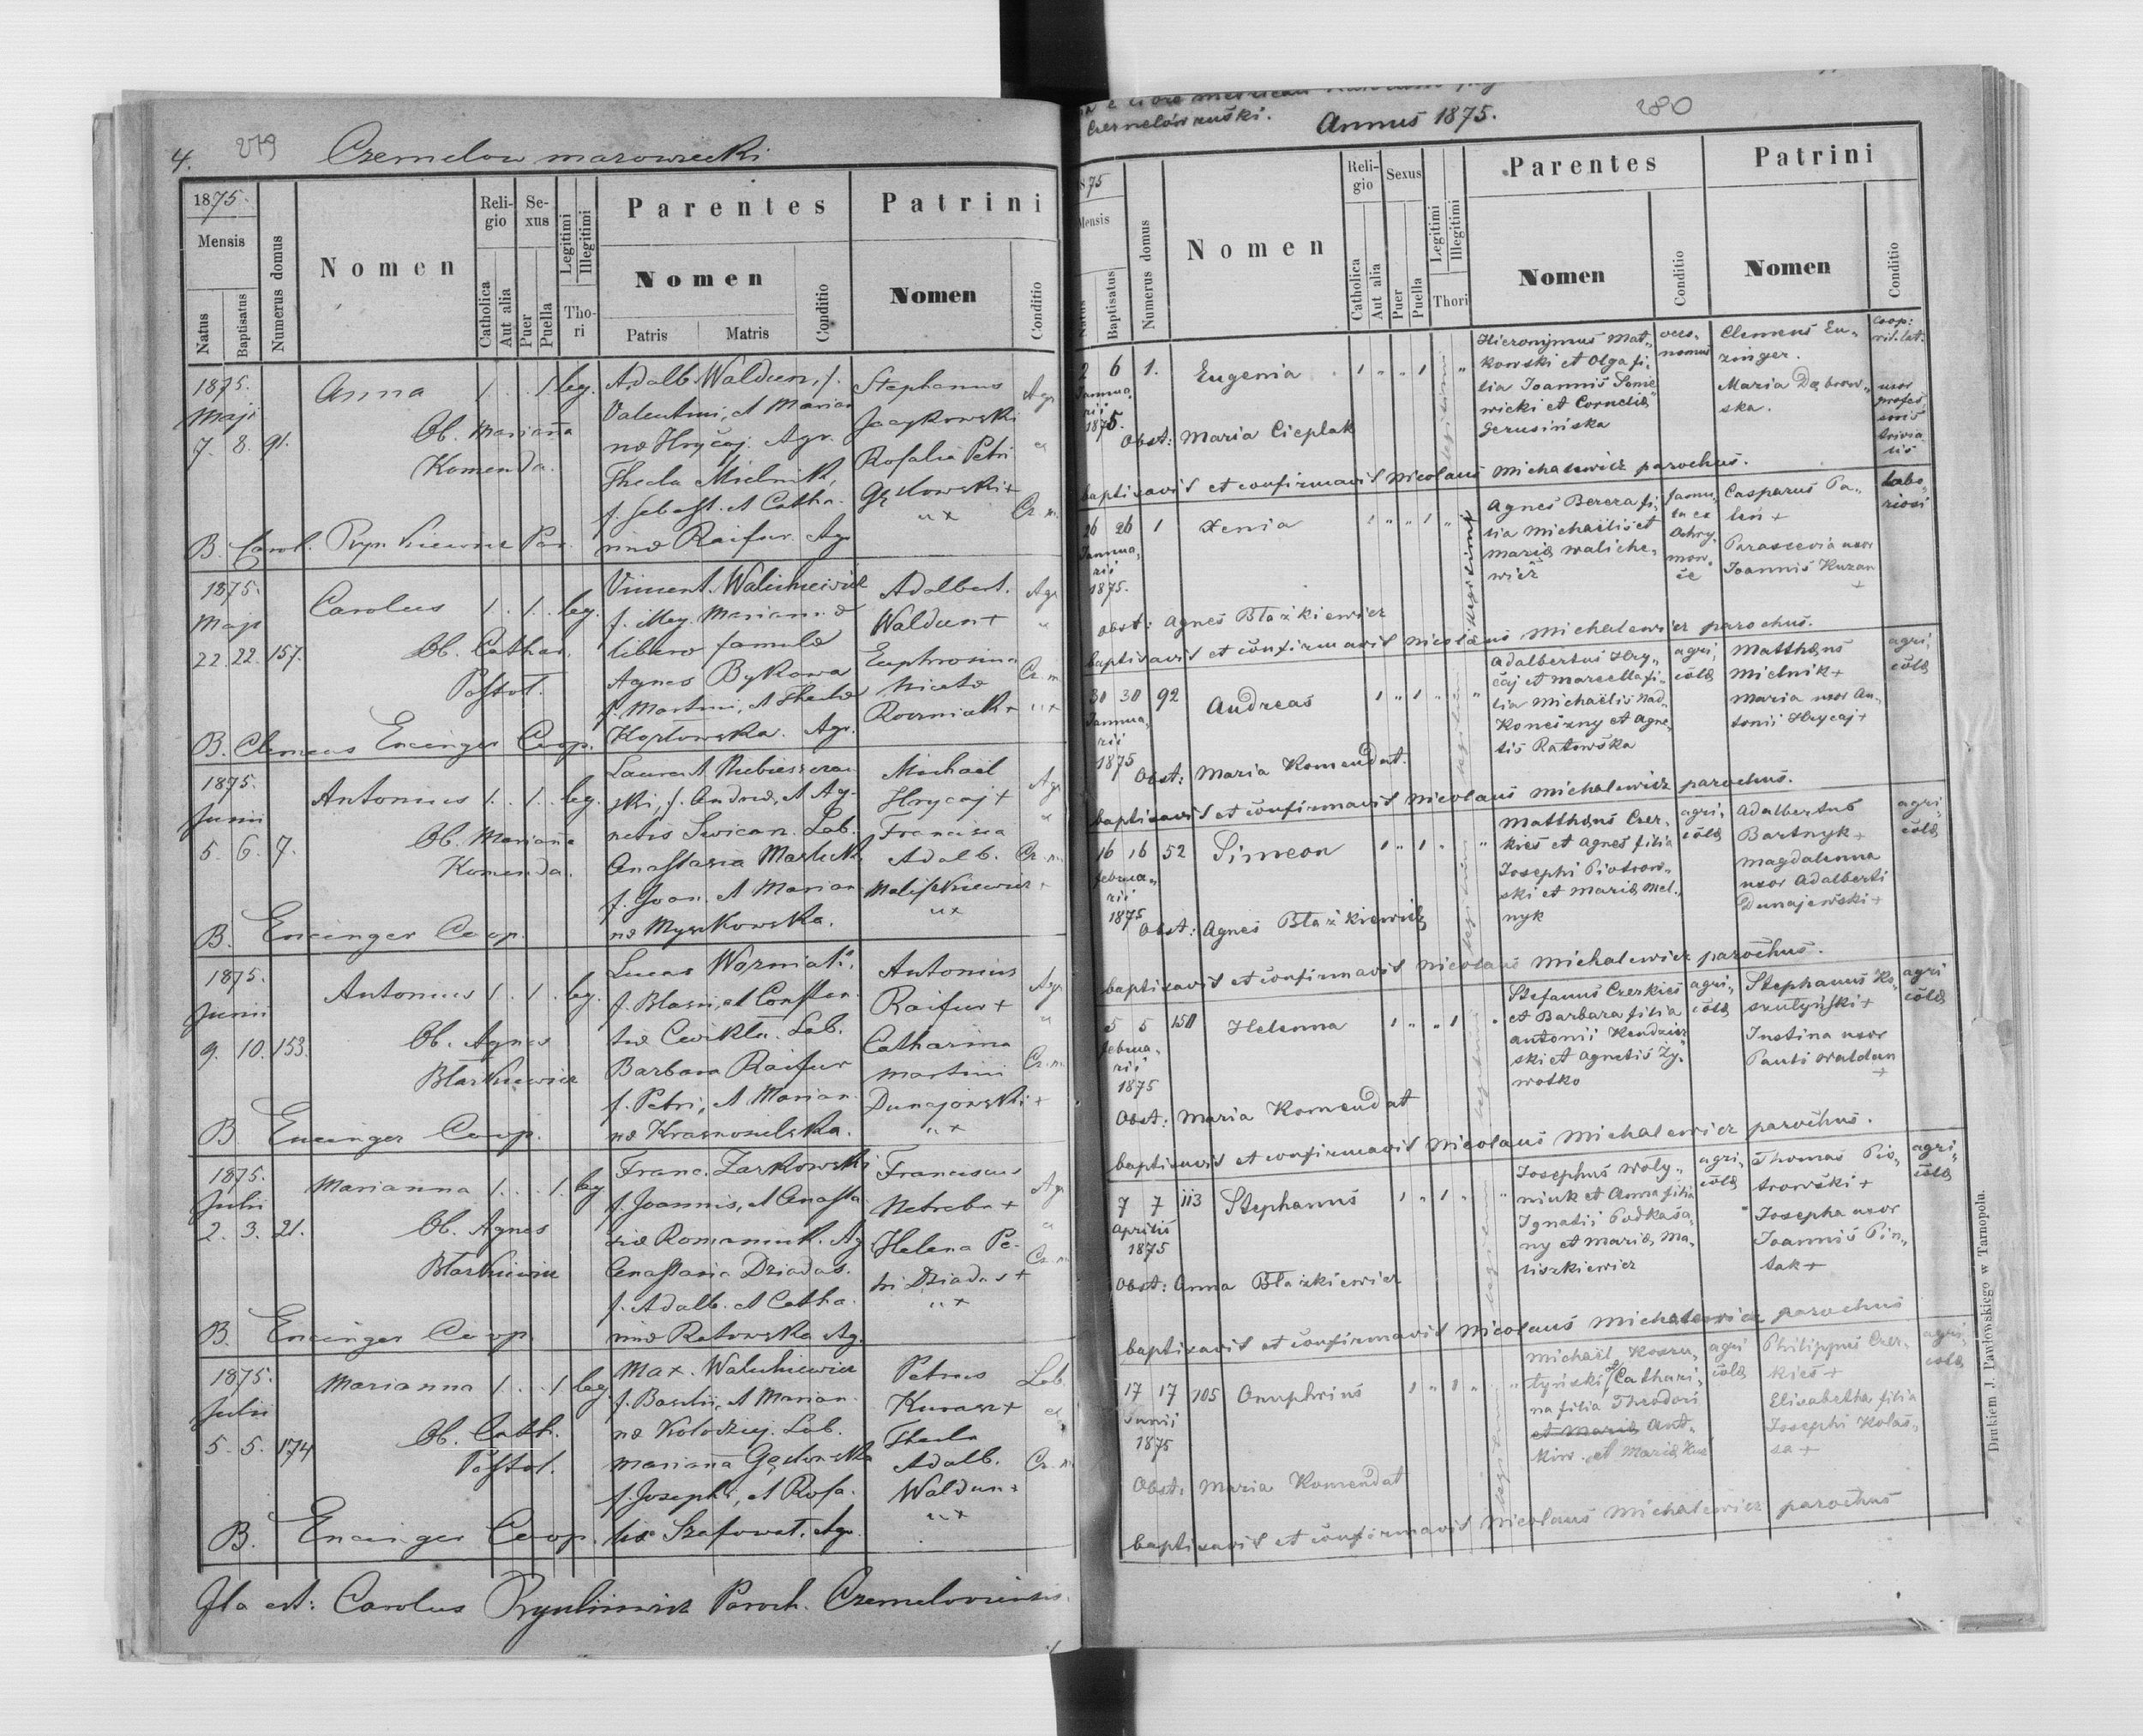 4. 279 Czernelow mazowiecki
1875.
Mensis
Natus
Baptisatus
Numerus domus
Nomen
Religio
Catholica
Aut alia
Sexus
Puer
Puella
Legitimi
Illegitimi
Thori
Parentes
Nomen
Patris
Matris
Conditio
Patrini
Nomen
Conditio
1875.
Maji
7. 8. 91.
Anna 1 . . 1 leg.
Ob. Marianna
Komenda.
Adalb. Waldun, f.
Valentini, et Marian
næ Hryčaj. Agr.
Thecla Mielnik,
f. Sebast. et Catha-
rinæ Raifur. Agr
Stephanus
Rosalia Petri
ux
Agr
Cr. m.
B. Carol. Par.
1875.
Maji
22. 22. 157.
Carolus 1 . 1 . leg.
Ob. Cathar.
Postol.
Vincent. Waluhiewicz
f. illeg. Mariannæ
libero famulæ
Agnes Bykowa
f. Martini, et Theclæ
Kozłowska. Agr.
Adalbert.
Waldun +
Euphrosina
Woźniak +
Agr
Cr. m.
B. Clemens Encinger Coop.
1875.
Junii
5. 6. 7.
Antonius 1 . 1 . leg.
Ob. Marianna
Komenda.
ski, f. Andreæ, et Ag-
netis Lab.
Anastasia
f. Joan. et Marian
næ Myszkowska.
Michael
Hrycaj +
Francisca
Adalb.
ux
Agr
Cr. m.
B. Encinger Coop.
1875.
Junii
9. 10. 153.
Antonius 1 . 1 . leg.
Ob. Agnes
Błaszkiewicz
Lucas Woźniak,
f. Blasii, et Constan-
tiæ Lab.
Barbara Raifur
f. Petri, et Marian
næ Krasnosielska.
Antonius
Raifur +
Catharina
Martini
Dunajowski +
ux
Agr
Cr. m.
B. Encinger Coop.
1875.
Julii
2. 3. 21.
Marianna 1 . . 1. leg
Ob. Agnes
Błaszkiewicz
Franc. Żarkowski
f. Joannis, et Anasta
siæ Romaniuk. Ag
Anastasia Dziadas.
f. Adalb. et Catha-
rinæ Ratowska Ag.
Franciscus
Netreba +
Helena Pe-
tri Dziadas +
ux
Agr
Cr. m.
B. Encinger Coop.
1875.
Julii
5. 5. 174
Marianna 1 . . 1 leg
Ob. Cath.
Postol.
Max. Waluhiewicz
f. Basilii, et Marian
næ Kołodziej. Lab.
Marianna
f. Josephi, et Rosa-
liæ Szafowat. Agr.
Petrus
Kurasz +
Thecla
Adalb.
Waldun
ux
Lab.
Cr. m.
B. Encinger Coop.
Ita est: Carolus Paroch. Czerneloviensis.
280
Czernelów ruski. Annus 1875.
1875
Mensis
Natus
Baptisatus
Numerus domus
Nomen
Religio
Catholica
Aut alia
Sexus
Puer
Puella
Legitimi
Illegitimi
Thori
Parentes
Nomen
Conditio
Patrini
Nomen
Conditio
2 6 1.
Januarii
1875.
Eugenia 1 " " 1 "
Obst: Maria Cieplak
Hieronymus Mat-
kowski et Olga fi-
lia Joannis Sienie
wicki et Corneliæ
Gerusińska
oeco-
nomus
Clemens En-
zinger.
Maria Dąbrow-
ska.
Coop:
rit. lat.
uxor
profes
soris
trivia
lis
baptisavit et confirmavit Nicolaus Michalewicz parochus.
26 26 1
Januarii
1875.
Xenia 1 " " 1 "
Obst: Agnes Błażkiewicz
Agnes Berera fi-
lia Michaëlis et
Mariæ Waliche-
wicz
famu-
la ex
Ochry-
mow-
ce
Casparus Pa-
leń +
Parascevia uxor
Joannis Huzan
+
labo-
riosi
baptisavit et confirmavit Nicolaus Michalewicz parochus.
30 30 92
Januarii
1875
Andreas 1 " 1 " "
Obst: Maria Komendat.
Adalbertus Hry-
čaj et Marcella fi-
lia Michaëlis Nad-
Koneczny et Agne-
tis Ratowska
agri-
colæ
Matthæus
Mielnik +
Maria uxor An-
tonii Hrycaj +
agri-
colæ
baptisavit et confirmavit Nicolaus Michalewicz parochus.
16 16 52
februa-
rii
1875
Simeon 1 " 1 " "
Obst: Agnes Błażkiewicz
Matthæus Czer-
kies et Agnes filia
Josephi Piotrow-
ski et Mariæ Mel-
nyk
agri-
colæ
Adalbertus
Bartnyk +
Magdalenna
uxor Adalberti
Dunajewski +
agri-
colæ
baptisavit et confirmavit Nicolaus Michalewicz parochus.
5 5 150
februa-
rii
1875
Helenna 1 " " 1 "
Obst: Maria Komendat
Stefanus Czerkies
et Barbara filia
Antonii Kendzier
ski et Agnetis Zy-
wotko
agri-
colæ
Stephanus Ko-
szulyński +
Justina uxor
Pauli Waldun
+
agri
colæ
baptisavit et confirmavit Nicolaus Michalewicz parochus.
7 7 113
Aprilis
1875
Stephanus 1 " 1 " "
Obst: Anna Błażkiewicz
Josephus Woły-
niuk et Anna filia
Ignatii Podkasa-
ny et Mariæ Ma-
liszkiewicz
agri-
colæ
Thomas Pio-
trowski +
Josepha uxor
Joannis Pin-
tak +
agri-
colæ
baptisavit et confirmavit Nicolaus Michalewicz parochus
17 17 105
Junii
1875
Onuphrius 1 " 1 " "
Obst: Maria Komendat
Michaël Koszu-
tyński et Cathari-
na filia Theodori
et Mariæ Ant-
kiw. et Mariæ Kuz
agri
colæ
Philippus Czer-
kies +
Elisabetha filia
Josephi Kolas-
sa +
agri-
colæ
baptisavit et confirmavit Nicolaus Michalewicz parochus
Drukiem J. Pawłowskiego w Tarnopolu.